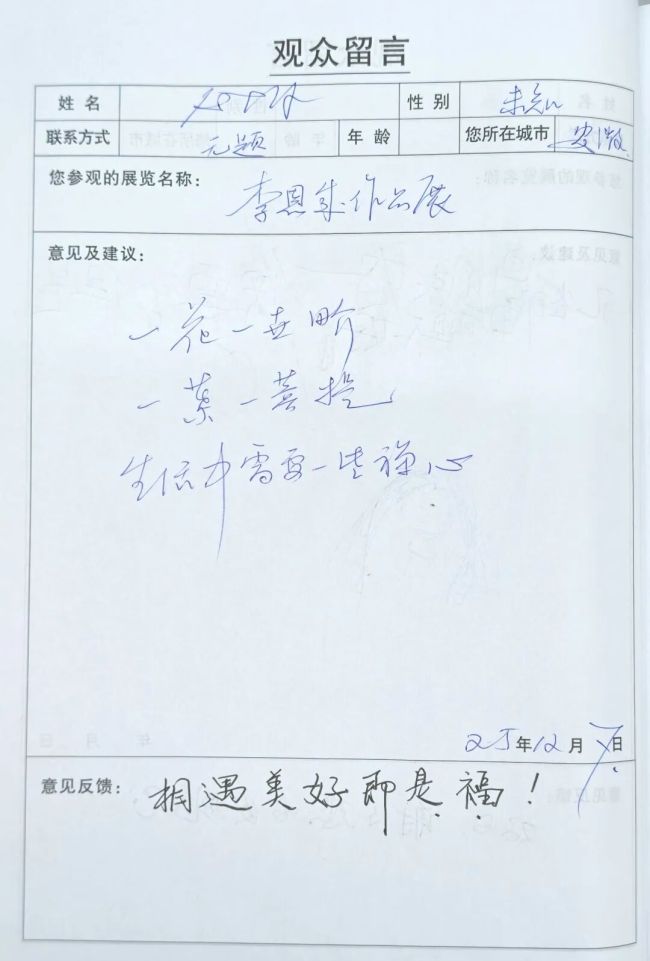 观众留言
姓名 性别 未知
联系方式 无题 年龄 您所在城市 安徽
您参观的展览名称： 李恩成作品展
意见及建议：
一花一世界
一葉一菩提
生活中需要一些禅心
25年12月 日
意见反馈： 相遇美好即是福！